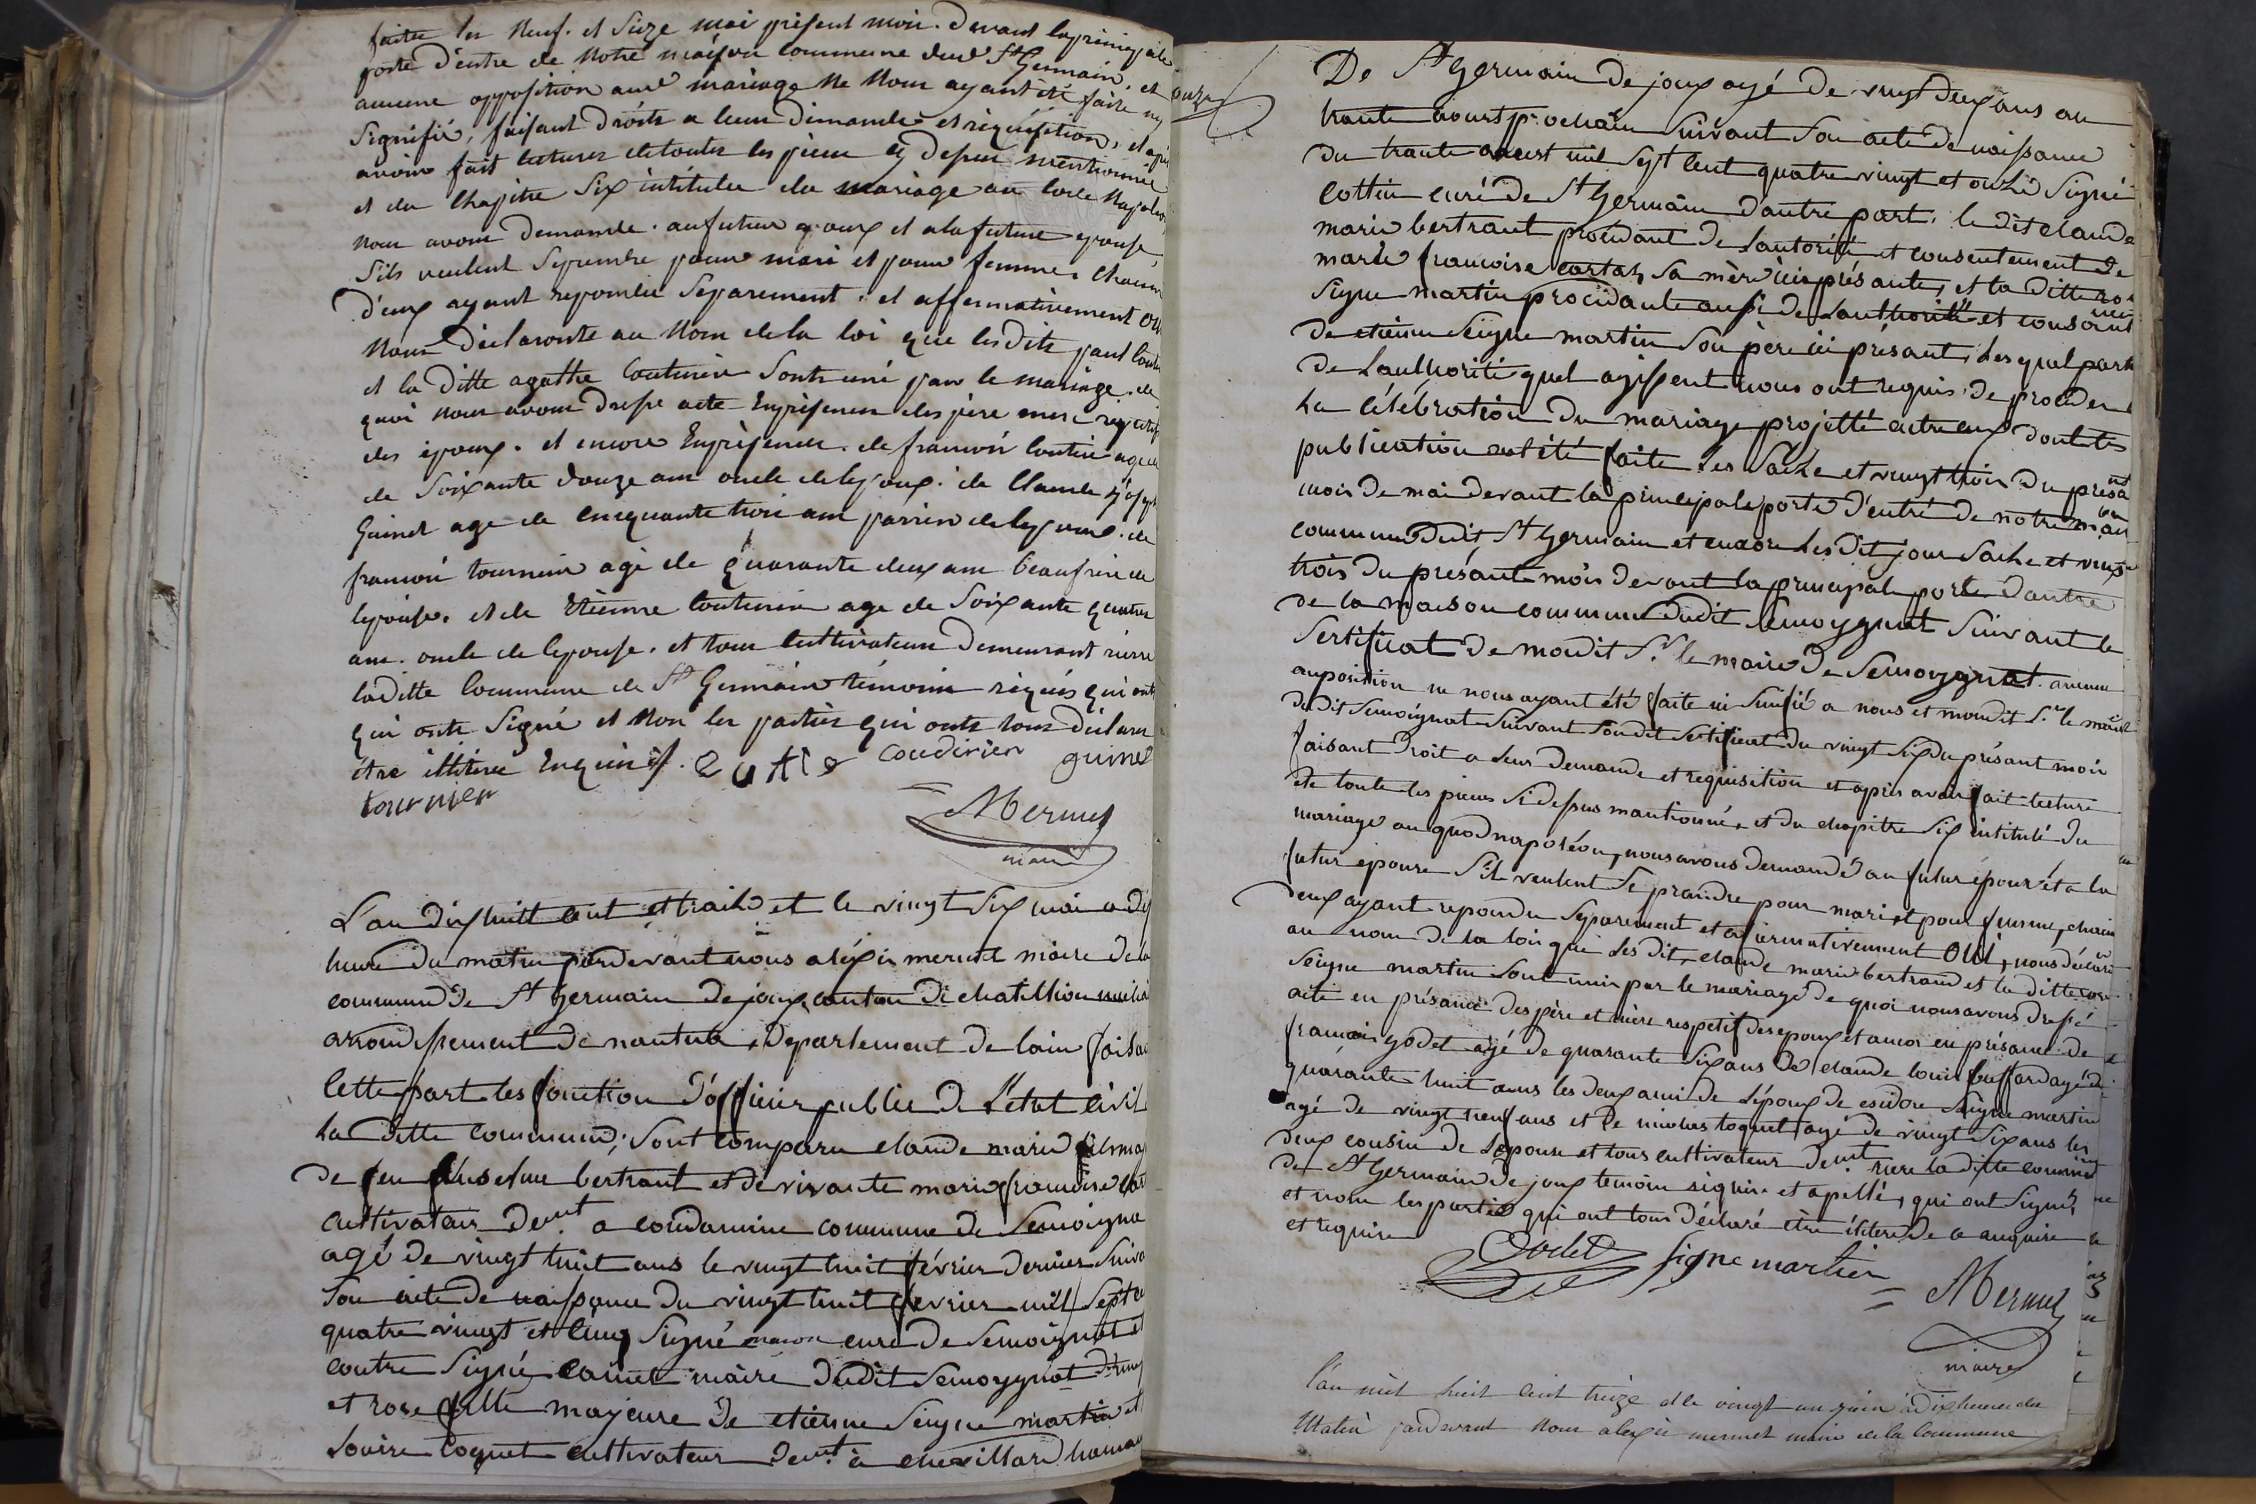 faites les Neuf. et Seize mai présent mois. devant la principale
porte d'entre de Notre maison commune dud St Germain, et
aucune opposition aud mariage Ne Nous ayant été faite ny
Signifié, faisant droits a leur demande et requisition, et après
avoir fait lectures de toutes les pieces cy dessus mentionnée
et du Chapitre Six intitulée du mariage au Code Napoleon
Nous avons demande. au futur epoux et a la future epouse
Sils veulent Seprendre pour mari et pour femme. chacun
d'eux ayant repondu Separement. et affermativement oui
Nous declaronts au Nom de la loi que lesdits paul
et la ditte agathe Couturier Sonts uni par le mariage. de
quoi nous avons dressé acte En présence des père mere respectif
des époux. et encore En présence de francois age
de Soixante douze ans oncle de lepoux. de Claude joseph
Guinet age de cinquante trois ans parrein de lepoux. de
francois tournier agé de quarante deux ans beaufrere de
lepouse. et de Etienne Couturier age de Soixante quatre
ans. oncle de lepouse. et tous cultivateurs demeurant riere
laditte Commune de St Germain témoins requis qui ont
qui onts Signé et Non les parties qui onts tous déclaré
être illitéré Enquis coudirier guinet
tournier
AMermet
maire
L'an dix huitt cent et traize et le vingt Six mai a dix
heure du matin pardevant nous aléxis mermet maire de la
commune de St Germain de joux canton de chatillion
arrondissement de nantua, departement de lain faisant
cette part les fonction d'officier public de L'etat civil
La ditte commune; Sont comparu claude marie
de feu bertrant et de vivante marie francoise
cultivateur demt a coudamine commune de Semoigna
agé de vingt huit ans le vingt huit février dernier Suiva
Son acte de naissance du vingt huit fevrier mil Sept ce
quatre vingt et cinq Signé curé de Semoignat et
contre Signé maire dudit Semoygnat
et rose fille mayeure de etienne Seigne martin et
Loquet cultivateur demt à chevillard
De St Germain de joux agé de vingt deux ans au
trante aoust prochain Suivant Son acte de naissance
du trante aoust mil Sept cent quatre vingt et onze Signé
Cottin curé de St Germain d'autre part. le dit claude
marie bertrant procédant de Lautorité et consentement de
marie francoise cartaz, Sa mère ici présante, et la ditte ro-
Signe martin procédante aussi de Lauthorité et
de etienne Seigne martin Son père ici présant, Lesqual part
de Lauthorité quel agissent nous ont requis de procéder
La célébration du mariage projetté entre eux dont les
publication ont été faite les Saize et vingt trois du présant
mois de mai devant la principale porte d'entré de notre
commune dudit St Germain et encore les dit jour Saize et vingt
trois du présant mois devant la principale porte d'antré
de la maison commune dudit Semoygnat Suivant le
Sertificat de mondit Sr le maire de Semoygnat. aucune
auposition ne nous ayant été faite ni Sinifié a nous et mondit Sr le maire
dudit Semoignat Suivant Son dit Sertificat du vingt Six du présant mois
faisant droit a leur demande et requisition et après avoir fait lecture
de toute les pieces Si dessus mantionné, et du chapitre Six intitulé du
mariage au quod napoléon, nous avons demandé au futur époux et a la
futur epouse S'il veulent Se prandre pour mari et pour femme, chacun
deux ayant repondu Separement et affirmativement OUI, nous déclaré
au nom de la loi que Les dit, claude marie bertrand et la ditte rose
Seigne martin Sont unis par le mariage de quoi nous avons dressé
acte en présance des père et mère respetif des epoux et ancor en présance de
francois godet agé de quarante Six ans de claude louis buffard agé de
quarante huit ans les deux ami de L'époux de esidore Seigne martin
agé de vingt neuf ans et de nicolas loquet agé de vingt Six ans les
deux cousin de Lépouse et tous cultivateur demt riere la ditte commune
de St Germain de joux temoin requis et apellé, qui ont Signé
et nom les parties qui ont tous déclaré être élitere de a anquis
et requise
Godet Signe martin
AMermet
maire
L'an mil huit cent treize et le vingt un juin à dix heures du
Matin pardevant Nous alexis mermet maire de la Commune